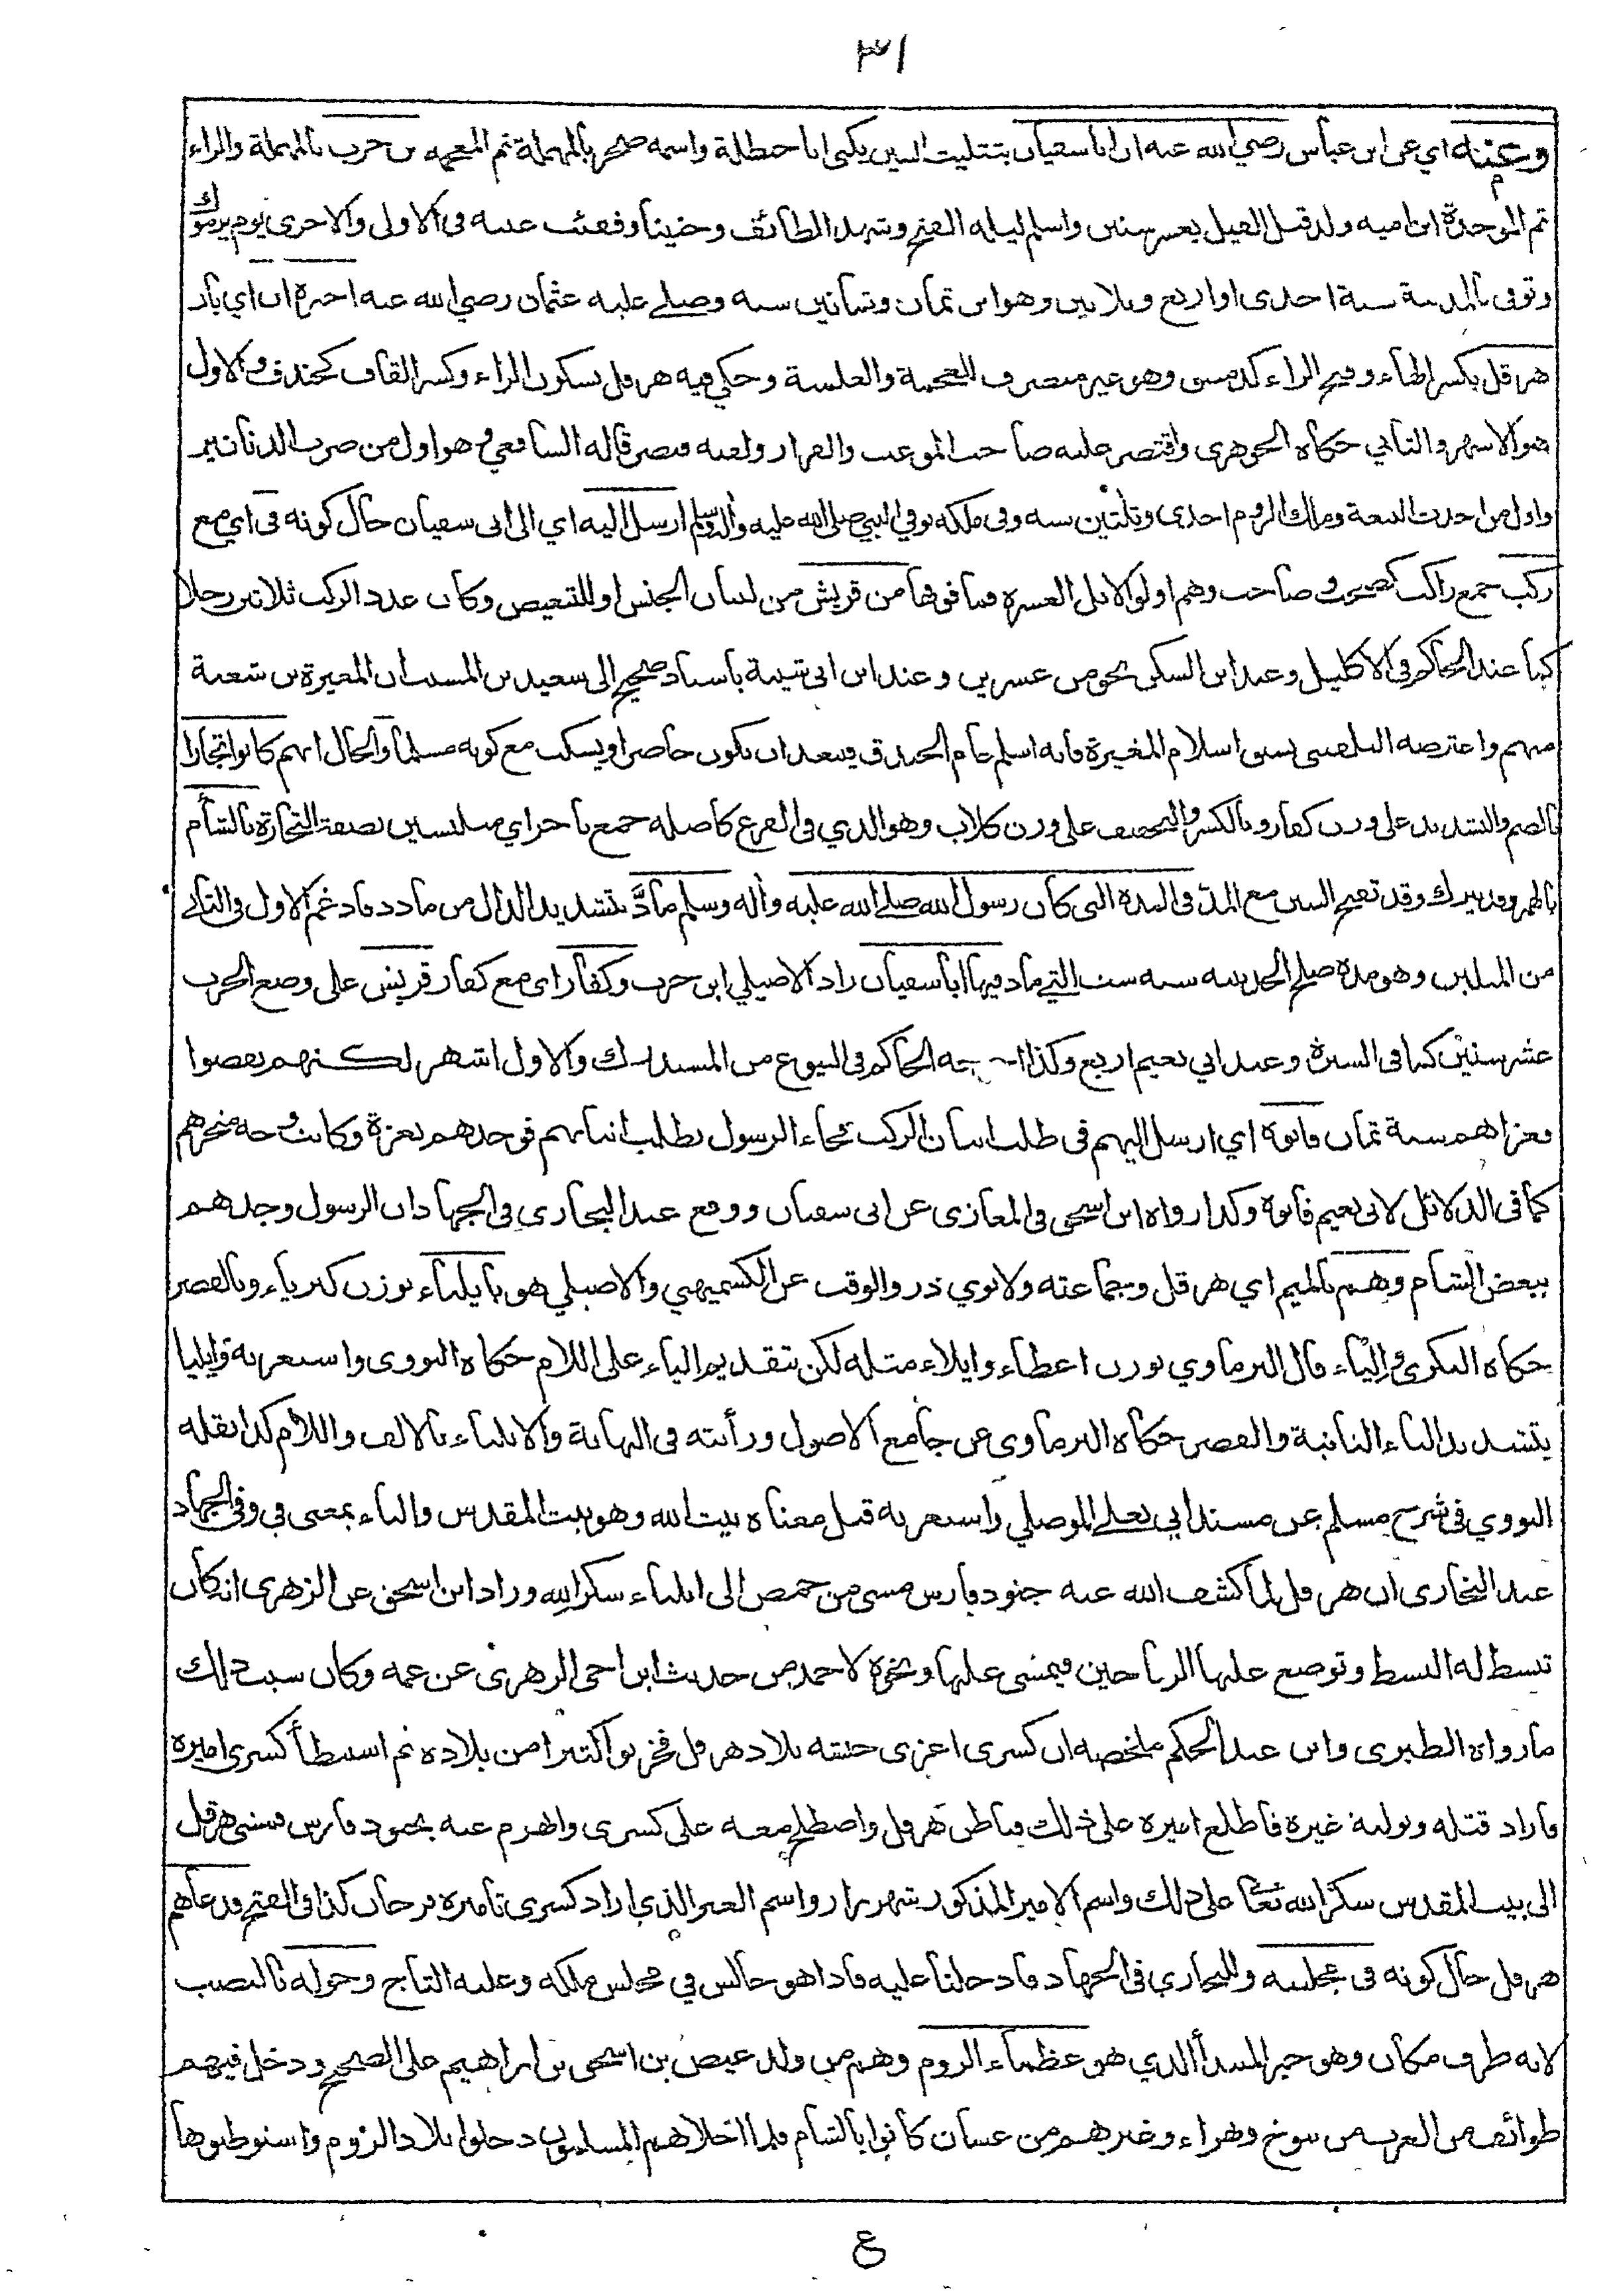 ٣١
وعنه اي عن ابن عباس رضي الله عنه ان ابا سفيان بتثليث السين يكنى ابا حنظلة واسمه صخر بالمهملة ثم المعجمه بن حرب بالمهملة والراء
ثم الموحدة ابن اميه ولد قبل الفيل بعشر سنين واسلم ليله الفتح وشهد الطائف وحنينا وفقئت عينه فى الاولى والاخرى يوم يرموك
وتوفى بالمدينة سنة احدى او اربع وثلاثين وهو ابن ثمان وثمانين سنه وصلے عليه عثمان رضي الله عنه اخبره ان اي بان
هرقل بكسر الهاء وفتح الراء كدمشق وهو غير منصرف للعجمة والعلمية وحكي فيه هرقل بسكون الراء وكسر القاف كخندف والاول
هو الاشهر والثاني حكاه الجوهرى واقتصر عليه صاحب الموعب والقزاز ولقبه قيصر قاله الشافعي وهو اول من ضرب الدنانير
واول من احدث البيعة وملك الروم احدى وثلثين سنه وفى ملكه توفي النبي صلى الله عليه وآله وسلم ارسل اليه اي الى ابى سفيان حال كونه فى اي مع
ركب جمع راكب كصحب وصاحب وهم اولو الابل العشرة فما فوقها من قريش من لبيان الجنس او للتبعيض وكان عدد الركب ثلاثين رجلا
كما عند الحاكم فى الاكليل وعند ابن السكن نحو من عشرين وعند ابن ابى شيبة باسناد صحيح الى سعيد بن المسيب ان المغيرة بن شعبة
منهم واعترضه البلقينى بسبق اسلام المغيرة فانه اسلم عام الخندق فيبعد ان يكون حاضرا ويسكت مع كونه مسلما والحال انهم كانوا تجارا
بالضم والتشديد على وزن كفار وبالكسر والتخفيف على وزن كلاب وهو الذي فى الفرع كاصله جمع تاجر اي متلبسين بصفة التجارة بالشأم
بالهمز وقد يترك وقد تفتح الشين مع المد فى المدة التى كان رسول الله صلے الله عليه وآله وسلم مادَّ بتشديد الدال من مادد فادغم الاول فى الثانى
من المثلين وهو مدة صلح الحديبيه سنه ست التي ماد فيها ابا سفيان زاد الاصيلي ابن حرب وكفار اى مع كفار قريش على وضع الحرب
عشر سنين كما فى السيرة وعند ابي نعيم اربع وكذا اخرجه الحاكم فى البيوع من المستدرك والاول اشهر لكنهم نقضوا
فغزاهم سنة ثمان فاتوه اي ارسل اليهم فى طلب اتيان الركب فجاء الرسول يطلب اتيانهم فوجدهم بغزة وكانت وجه متجرهم
كما فى الدلائل لابى نعيم فاتوه وكذا رواه ابن اسحق فى المغازى عن ابى سفيان ووقع عند البخارى فى الجهاد ان الرسول وجدهم
ببعض الشام وهم بالميم اي هرقل وجماعته ولابوي ذر والوقت عن الكشميهني والاصيلي هو بايلياء بوزن كبرياء وبالقصر
حكاه البكرى والياء قال البرماوي بوزن اعطاء وايلاء مثله لكن بتقديم الياء على اللام حكاه النووى واستغربه وايليا
بتشديد الياء الثانية والقصر حكاه البرماوى عن جامع الاصول ورأيته فى النهاية والايلياء بالالف واللام كذا نقله
النووي فى شرح مسلم عن مسند ابي يعلے الموصلي واستغربه قيل معناه بيت الله وهو بيت المقدس والباء بمعنى فى وفى الجهاد
عند البخارى ان هرقل لما كشف الله عنه جنود فارس مشى من حمص الى ايلياء شكرا لله وزاد ابن اسحق عن الزهرى انه كان
تبسط له البسط وتوضع عليها الرياحين فيمشى عليها ونحوه لاحمد من حديث ابن اخى الزهرى عن عمه وكان سبب ذلك
ما رواه الطبرى وابن عبد الحكم ملخصه ان كسرى اغزى جيشه بلاد هرقل فخربوا كثيرا من بلاده ثم استبطأ كسرى اميره
فاراد قتله وتوليه غيره فاطلع اميره على ذلك فباطن هرقل واصطلح معه على كسرى وانهزم عنه بجنود فارس فمشى هرقل
الى بيت المقدس شكرا لله تعالى على ذلك واسم الامير المذكور شهربراز واسم الغير الذي اراد كسرى تاميره فرحان كذا فى الفتح فدعاهم
هرقل حال كونه فى مجلسه وللبخارى فى الجهاد فادخلنا عليه فاذا هو جالس في مجلس ملكه وعليه التاج وحوله بالنصب
لانه ظرف مكان وهو خبر المبتدأ الذي هو عظماء الروم وهم من ولد عيص بن اسحق بن ابراهيم على الصحيح ودخل فيهم
طوائف من العرب من تنوخ وبهراء وغيرهم من غسان كانوا بالشام فلما اجلاهم المسلمون دخلوا بلاد الروم واستوطنوها
ع